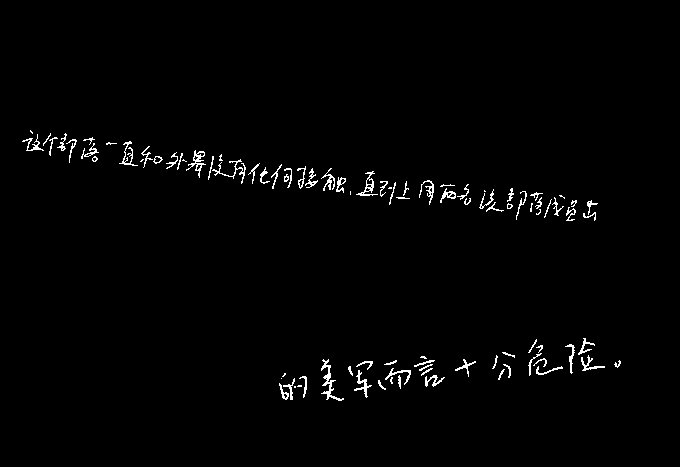 这个部落一直和外界没有任何接触,直到上周两名该部落成员出
的美军而言十分危险。